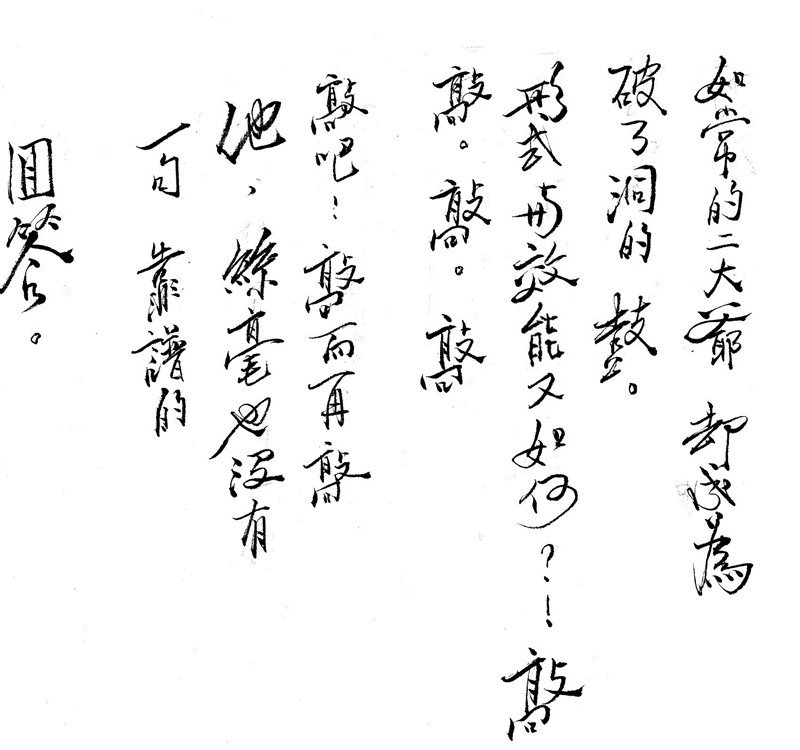 如常的二大爺 却成為
破了洞的 鼓。
形式與效能又如何?! 敲
敲。敲。敲
敲吧! 敲而再敲
他,絲毫也沒有
一句 靠譜的
回答。